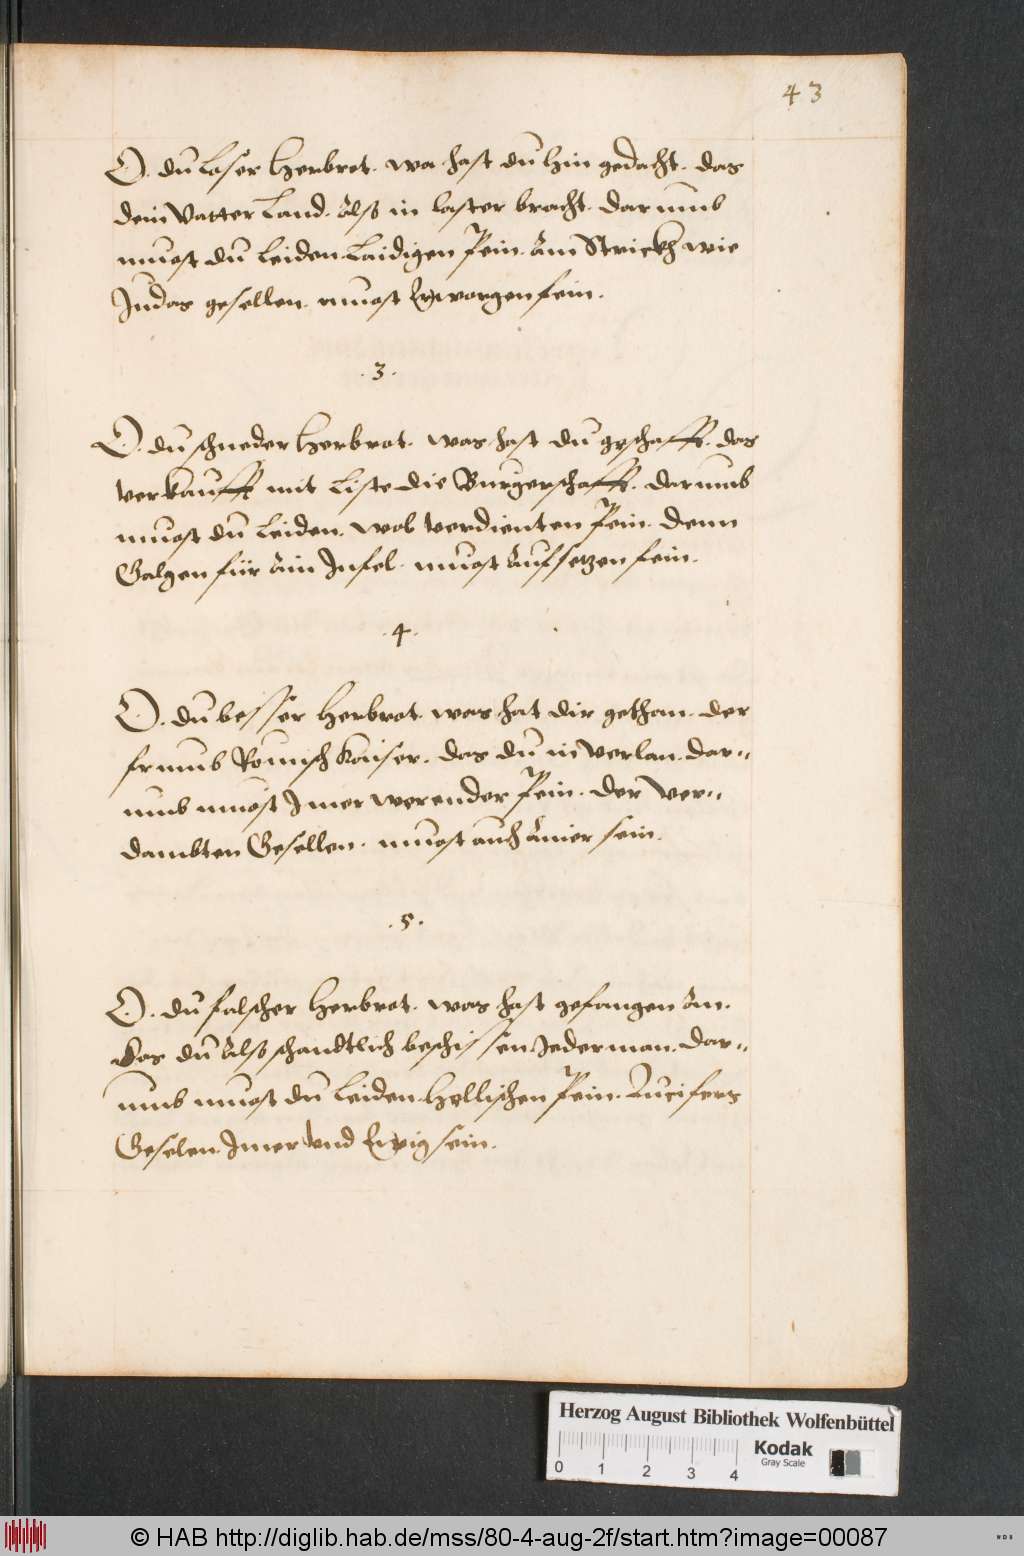 43
O. du loser Herbrot. wa hast du hin gedacht. das
dein Vatter Land. Alß in laster bracht. darumb
muost du leiden. Laidigen Pein. Am Strickh wie
Judas gesellen. muost Erworgen fein.
.3.
O. du schneder Herbrot. was hast du geschafft. das
verkaufft mit Liste die Burgerschafft. darumb
muost du Leiden. wol verdienten Pein. denn
Galgen für Ain Infel. muost Aufsetzen fein.
.4.
O. du besser Herbrot. was hat dir gethan. der
frumb Römisch Kaiser. das du in Verlan. dar-
umb muost Imer werender Pein. der Ver-
dambten Gesellen. muost auch Ainer sein.
.5.
O. du falscher Herbrot. was hast gefangen An.
das du Alß schandtlich beschissen Jederman. dar-
umb muost du Leiden. Hellischen Pein. Lucifers
Geselen. Imer vnd Ewig sein.
Herzog August Bibliothek Wolfenbüttel
Kodak
Gray Scale
0 1 2 3 4
© HAB http://diglib.hab.de/mss/80-4-aug-2f/start.htm?image=00087